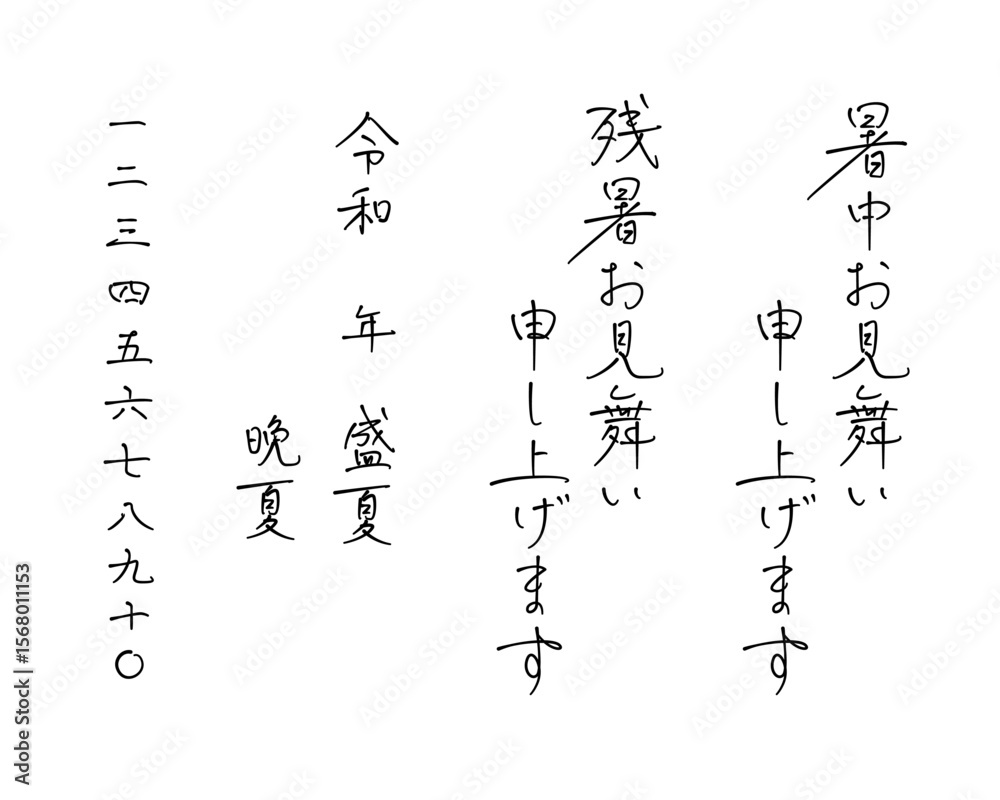 暑中お見舞い
申し上げます
残暑お見舞い
申し上げます
令和 年 盛夏
晩夏
一二三四五六七八九十〇
Adobe Stock | #1568011153